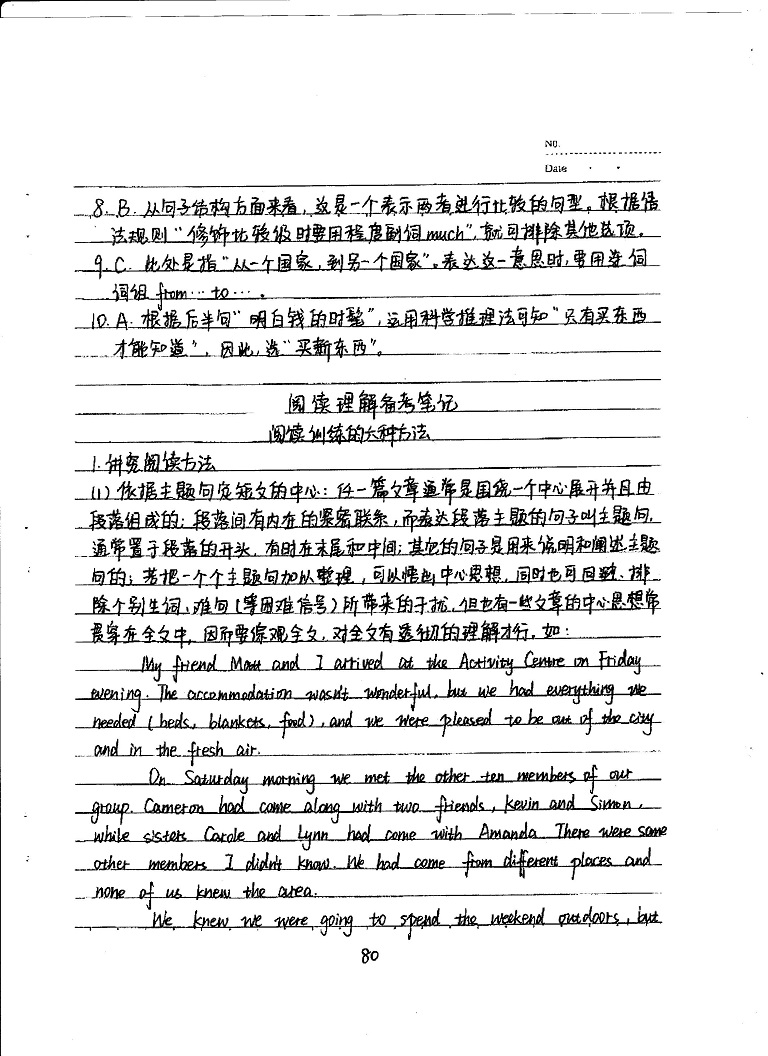 No.
Date
8. B. 从句子结构方面来看, 这是一个表示两者进行比较的句型。根据语
法规则"修饰比较级时要用程度副词much", 就可排除其他选项。
9. C. 此处是指"从一个国家, 到另一个国家"。表达这一意思时, 要用连词
词组 from … to … 。
10. A. 根据后半句"明白钱的时髦", 运用科学推理法可知"只有买东西
才能知道", 因此, 选"买新东西"。
阅读理解备考笔记
阅读训练的六种方法
1. 讲究阅读方法
(1) 依据主题句定短文的中心: 任一篇文章通常是围绕一个中心展开并且由
段落组成的; 段落间有内在的紧密联系, 而表达段落主题的句子叫主题句,
通常置于段落的开头, 有时在末尾和中间; 其它的句子是用来说明和阐述主题
句的; 若把一个个主题句加以整理, 可以悟出中心思想, 同时也可回避、排
除个别生词、难句(等困难信号)所带来的干扰, 但也有一些文章的中心思想常
贯穿在全文中, 因而要综观全文, 对全文有透彻的理解才行, 如:
My friend Matt and I arrived at the Activity Centre on Friday
evening. The accommodation wasn't wonderful, but we had everything we
needed (beds, blankets, food), and we were pleased to be out of the city
and in the fresh air.
On Saturday morning we met the other ten members of our
group. Cameron had come along with two friends, Kevin and Simon,
while sisters Carole and Lynn had come with Amanda. There were some
other members I didn't know. We had come from different places and
none of us knew the area.
We knew we were going to spend the weekend outdoors, but
80